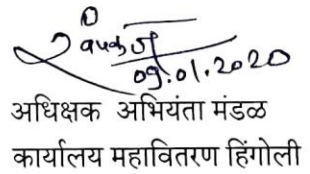 09.01.2020
अधिक्षक अभियंता मंडळ
कार्यालय महावितरण हिंगोली